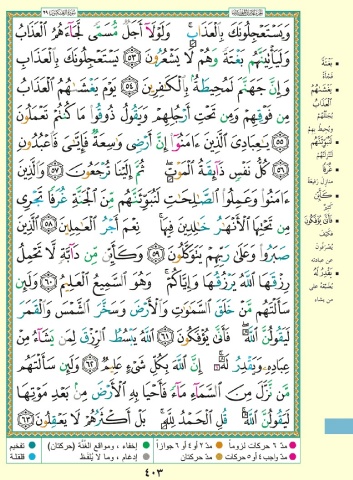 سورة العنكبوت ٢٩
وَيَسْتَعْجِلُونَكَ بِالْعَذَابِ وَلَوْلَا أَجَلٌ مُّسَمًّى لَّجَاءَهُمُ الْعَذَابُ
وَلَيَأْتِيَنَّهُم بَغْتَةً وَهُمْ لَا يَشْعُرُونَ ٥٣ يَسْتَعْجِلُونَكَ بِالْعَذَابِ
وَإِنَّ جَهَنَّمَ لَمُحِيطَةٌ بِالْكَافِرِينَ ٥٤ يَوْمَ يَغْشَاهُمُ الْعَذَابُ
مِن فَوْقِهِمْ وَمِن تَحْتِ أَرْجُلِهِمْ وَيَقُولُ ذُوقُوا مَا كُنتُمْ تَعْمَلُونَ
٥٥ يَاعِبَادِيَ الَّذِينَ ءَامَنُوا إِنَّ أَرْضِي وَاسِعَةٌ فَإِيَّايَ فَاعْبُدُونِ
٥٦ كُلُّ نَفْسٍ ذَائِقَةُ الْمَوْتِ ثُمَّ إِلَيْنَا تُرْجَعُونَ ٥٧ وَالَّذِينَ
ءَامَنُوا وَعَمِلُوا الصَّالِحَاتِ لَنُبَوِّئَنَّهُم مِّنَ الْجَنَّةِ غُرَفًا تَجْرِي
مِن تَحْتِهَا الْأَنْهَارُ خَالِدِينَ فِيهَا نِعْمَ أَجْرُ الْعَامِلِينَ ٥٨ الَّذِينَ
صَبَرُوا وَعَلَى رَبِّهِمْ يَتَوَكَّلُونَ ٥٩ وَكَأَيِّن مِّن دَابَّةٍ لَّا تَحْمِلُ
رِزْقَهَا اللَّهُ يَرْزُقُهَا وَإِيَّاكُمْ وَهُوَ السَّمِيعُ الْعَلِيمُ ٦٠ وَلَئِن
سَأَلْتَهُم مَّنْ خَلَقَ السَّمَاوَاتِ وَالْأَرْضَ وَسَخَّرَ الشَّمْسَ وَالْقَمَرَ
لَيَقُولُنَّ اللَّهُ فَأَنَّى يُؤْفَكُونَ ٦١ اللَّهُ يَبْسُطُ الرِّزْقَ لِمَن يَشَاءُ مِنْ
عِبَادِهِ وَيَقْدِرُ لَهُ إِنَّ اللَّهَ بِكُلِّ شَيْءٍ عَلِيمٌ ٦٢ وَلَئِن سَأَلْتَهُم
مَّن نَّزَّلَ مِنَ السَّمَاءِ مَاءً فَأَحْيَا بِهِ الْأَرْضَ مِن بَعْدِ مَوْتِهَا
لَيَقُولُنَّ اللَّهُ قُلِ الْحَمْدُ لِلَّهِ بَلْ أَكْثَرُهُمْ لَا يَعْقِلُونَ ٦٣
بَغْتَةً
فجأة
يَغْشَاهُمُ
الْعَذَابُ
يجلّلهم
ويحيط بهم
لَنُبَوِّئَنَّهُم
لننزلنّهم
غُرَفًا
منازل رفيعة
كَأَيِّن
كثير
فَأَنَّى يُؤْفَكُونَ
فكيف
يصرفون
عن عبادته
يَقْدِرُ لَهُ
يضيّقه على
من يشاء
مدّ ٦ حركات لزوماً مدّ ٢ أو ٤ أو ٦ جوازاً إخفاء، ومواقع الغُنَّة (حركتان) تفخيم
مدّ واجب ٤ أو ٥ حركات مدّ حركتان إدغام، وما لا يُلفَظ قلقلة
٤٠٣